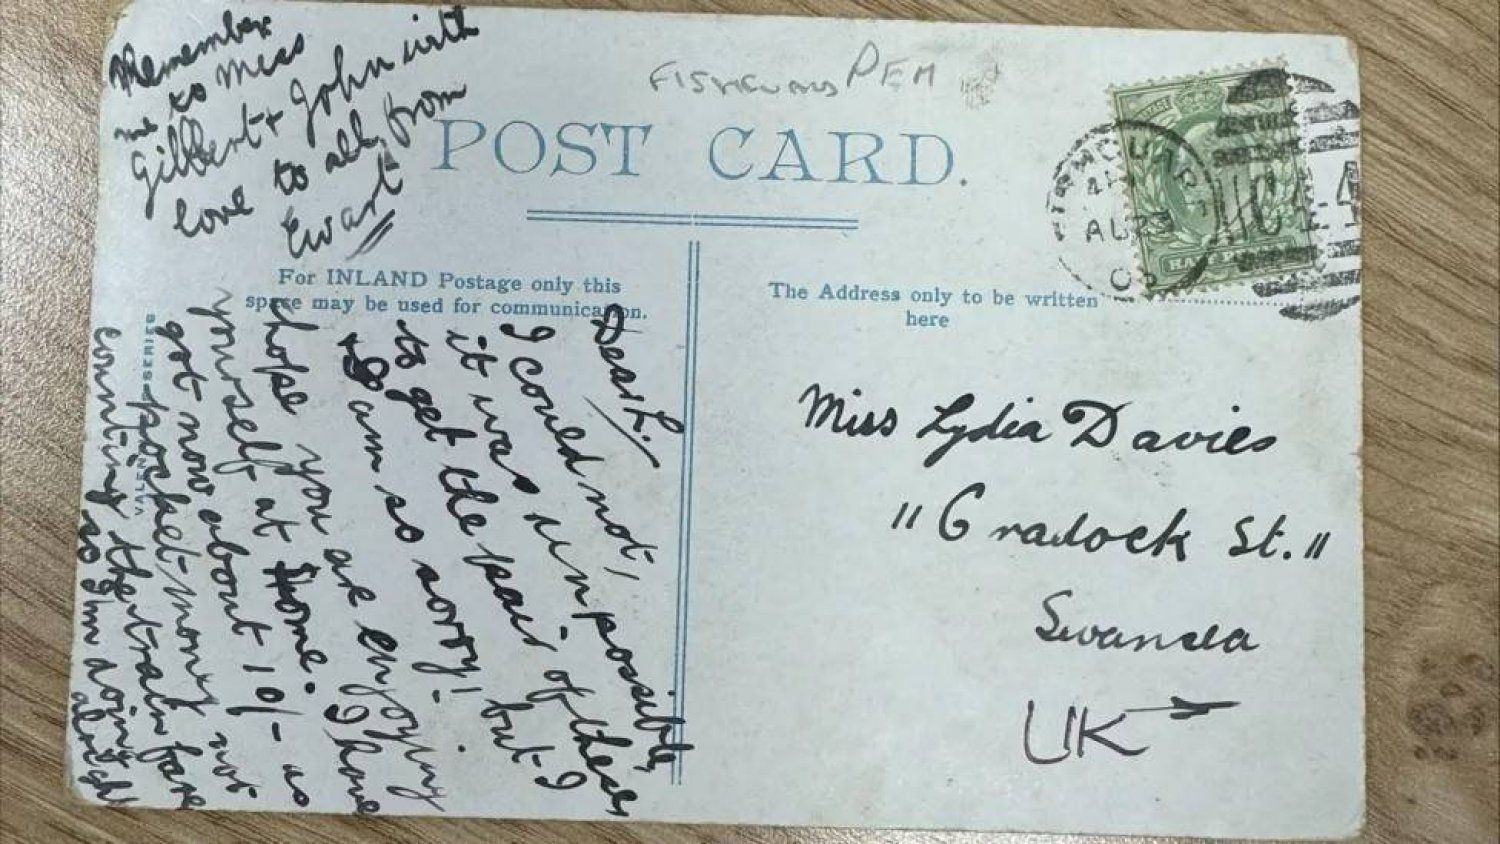 FISHGUARD PEM
POST CARD.
For INLAND Postage only this
space may be used for communication.
The Address only to be written
here
AU 23
HALFPENNY
Miss Lydia Davies
"Cradock St."
Swansea
UK
Dear L.
I could not,
it was impossible,
to get the pair of these
& I am so sorry! but I
hope you are enjoying
yourself at Home. I have
got now about 10/- as
pocket money not
counting the train fare
so I'm doing
alright
Remember
me to Miss
Gilbert & John with
love to all, from
Ewart
VALENTINES SERIES